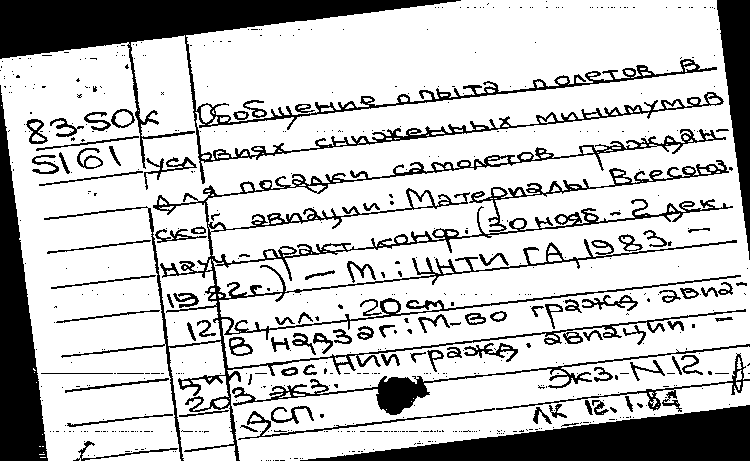 83-50к Обобщение опыта полетов в
5161 условиях сниженных минимумов
для посадки самолетов граждан-
ской авиации: Материалы Всесоюз.
науч.-практ. конф. (30 нояб.-2 дек.
1982г.). — М.: ЦНТИ ГА, 1983. —
127с., ил. ; 20см.
В надзаг.: М-во гражд. авиа-
ции, Гос. НИИ гражд. авиации. —
203 экз.
Экз. N 12.
ДСП.
ЛК 12.1.84